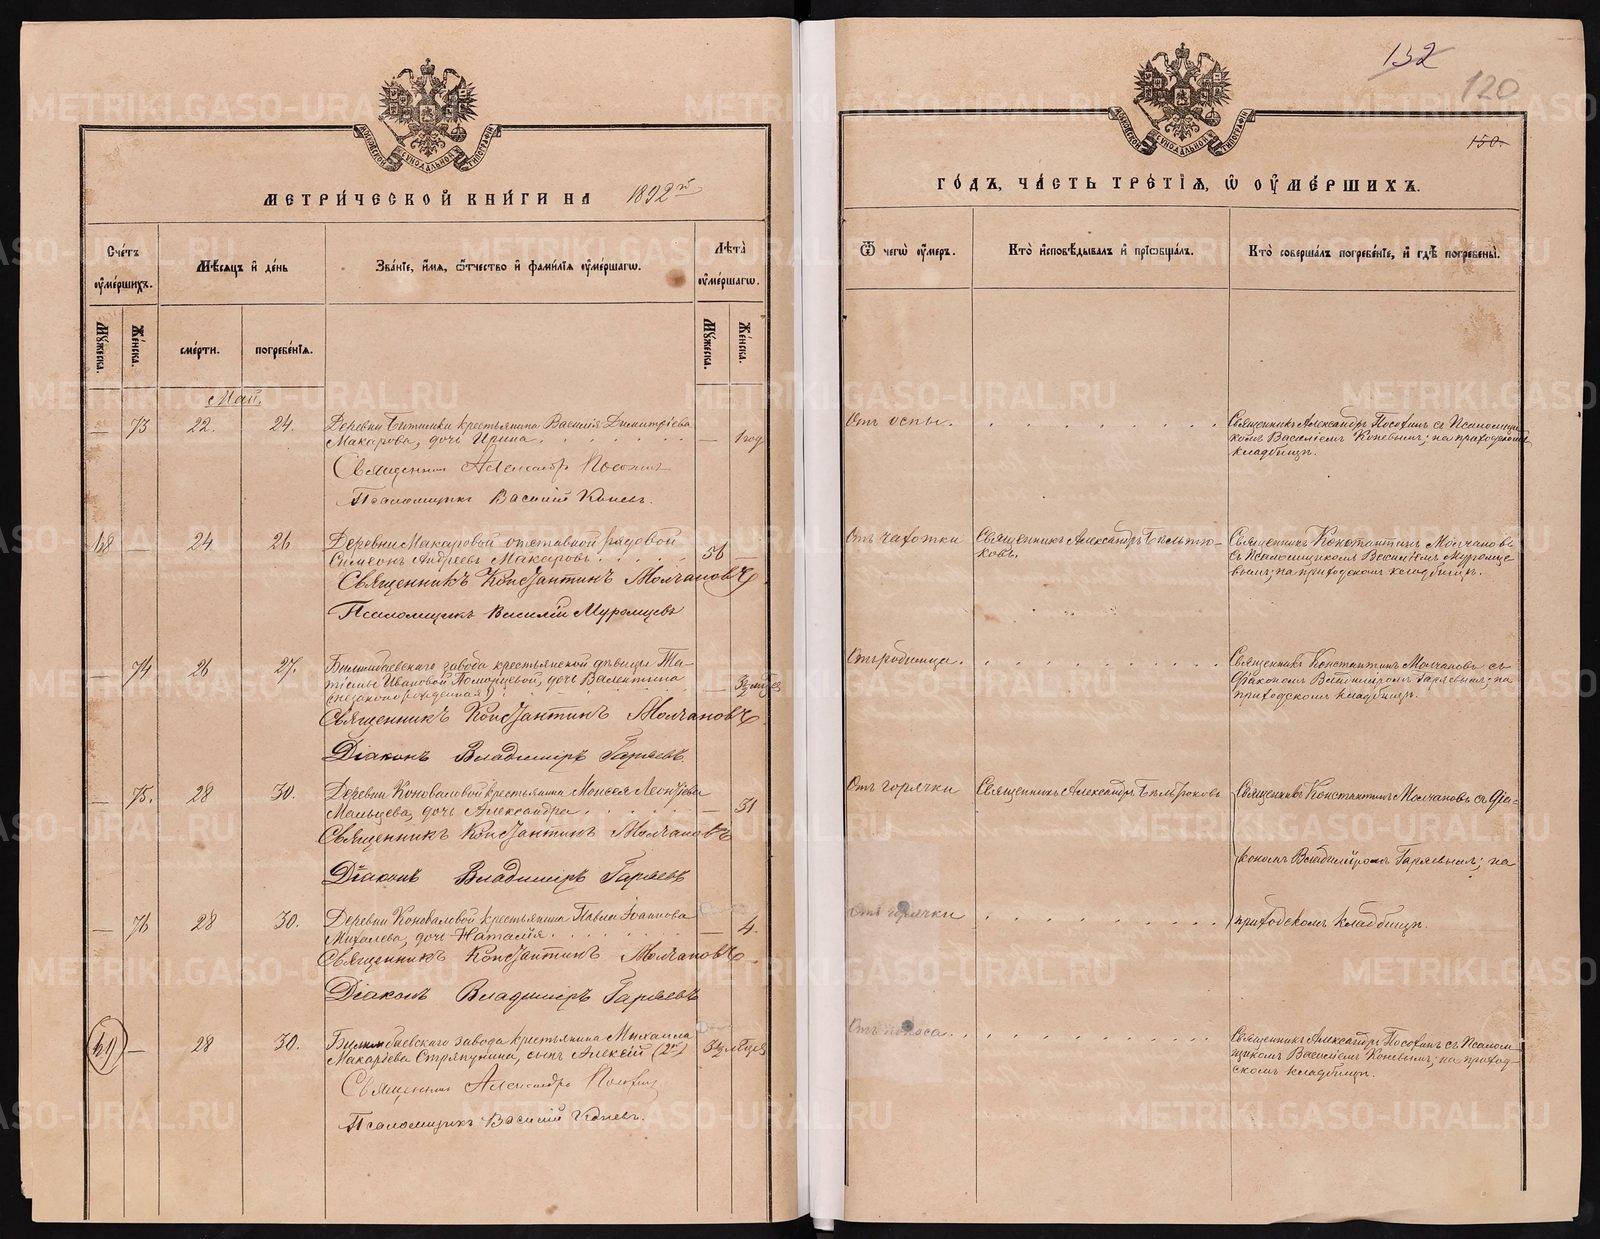 МЕТРИ́ЧЕСКОЙ КНИ́ГИ НА 1892й
Сче́тъ ᲂу҆ме́ршихъ.
Мѣ́сяцъ и҆ де́нь
Зва́нїе, и҆́мя, ѻ҆́тчество и҆ фами́лїя ᲂу҆ме́ршагѡ.
Лѣ́та ᲂу҆ме́ршагѡ.
Мꙋ́жеска.
Же́нска.
сме́рти.
погребе́нїя.
Мꙋ́жеска.
Же́нска.
Май.
— 73 22. 24. Деревни Битимки крестьянина Василія Димитріева
Макарова, дочь Ирина. — 1 год
Священник Александр Посохин
Псаломщикъ Василій Коневъ.
48 — 24 26 Деревни Макаровой отставной рядовой
Симеонъ Андреевъ Макаровъ. 56
Священникъ Константинъ Молчановъ
Псаломщикъ Василій Муромцевъ
— 74 26 27. Билимбаевскаго завода крестьянской дѣвицы Та-
тіаны Ивановой Поморцевой, дочь Валентина
(незаконнорожденная)
Священникъ Константинъ Молчановъ
Діаконъ Владимиръ Гаряевъ.
— 75. 28 30. Деревни Коноваловой крестьянина Моисея Леонтіева
Мальцева, дочь Александра. — 31
Священникъ Константинъ Молчановъ
Діаконъ Владимиръ Гаряевъ
— 76 28 30. Деревни Коноваловой крестьянина Павла Іоаннова
Михалева, дочь Наталія. — 4.
Священникъ Константинъ Молчановъ.
Діаконъ Владимиръ Гаряевъ
49 — 28 30. Билимбаевскаго завода крестьянина Михаила
Макарьева Стряпунина, сынъ Алексѣй (2й)
Священник Александръ Посохин
Псаломщикъ Василій Коневъ.
132
120
150.
ГО́ДЪ, ЧА́СТЬ ТРЕ́ТЇЯ, Ѡ҆ ОУ҆МЕ́РШИХЪ.
Ѿ чегѡ̀ ᲂу҆́меръ.
Кто̀ и҆сповѣ́дывалъ и҆ прїѡбща́лъ.
Кто̀ соверша́лъ погребе́нїе, и҆ гдѣ̀ погребены̀.
Отъ оспы. Священникъ Александръ Посохинъ съ Псаломщи-
комъ Василіемъ Коневымъ; на приходскомъ
кладбищѣ.
Отъ чахотки Священникъ Александръ Бѣльтю-
ковъ. Священникъ Константинъ Молчановъ
съ Псаломщикомъ Василіемъ Муромце
вымъ; на приходскомъ кладбищѣ.
Отъ родимца. Священникъ Константинъ Молчановъ съ
Діакономъ Владимиромъ Гаряевымъ; на
приходскомъ кладбищѣ.
Отъ горячки Священникъ Александръ Бѣльтюковъ Священникъ Константинъ Молчановъ съ Діа-
кономъ Владимиромъ Гаряевымъ; на
Отъ горячки приходскомъ кладбищѣ.
Отъ поноса. Священникъ Александръ Посохинъ съ Псалом-
щикомъ Василіемъ Коневымъ; на приход-
скомъ кладбищѣ.
METRIKI.GASO-URAL.RU